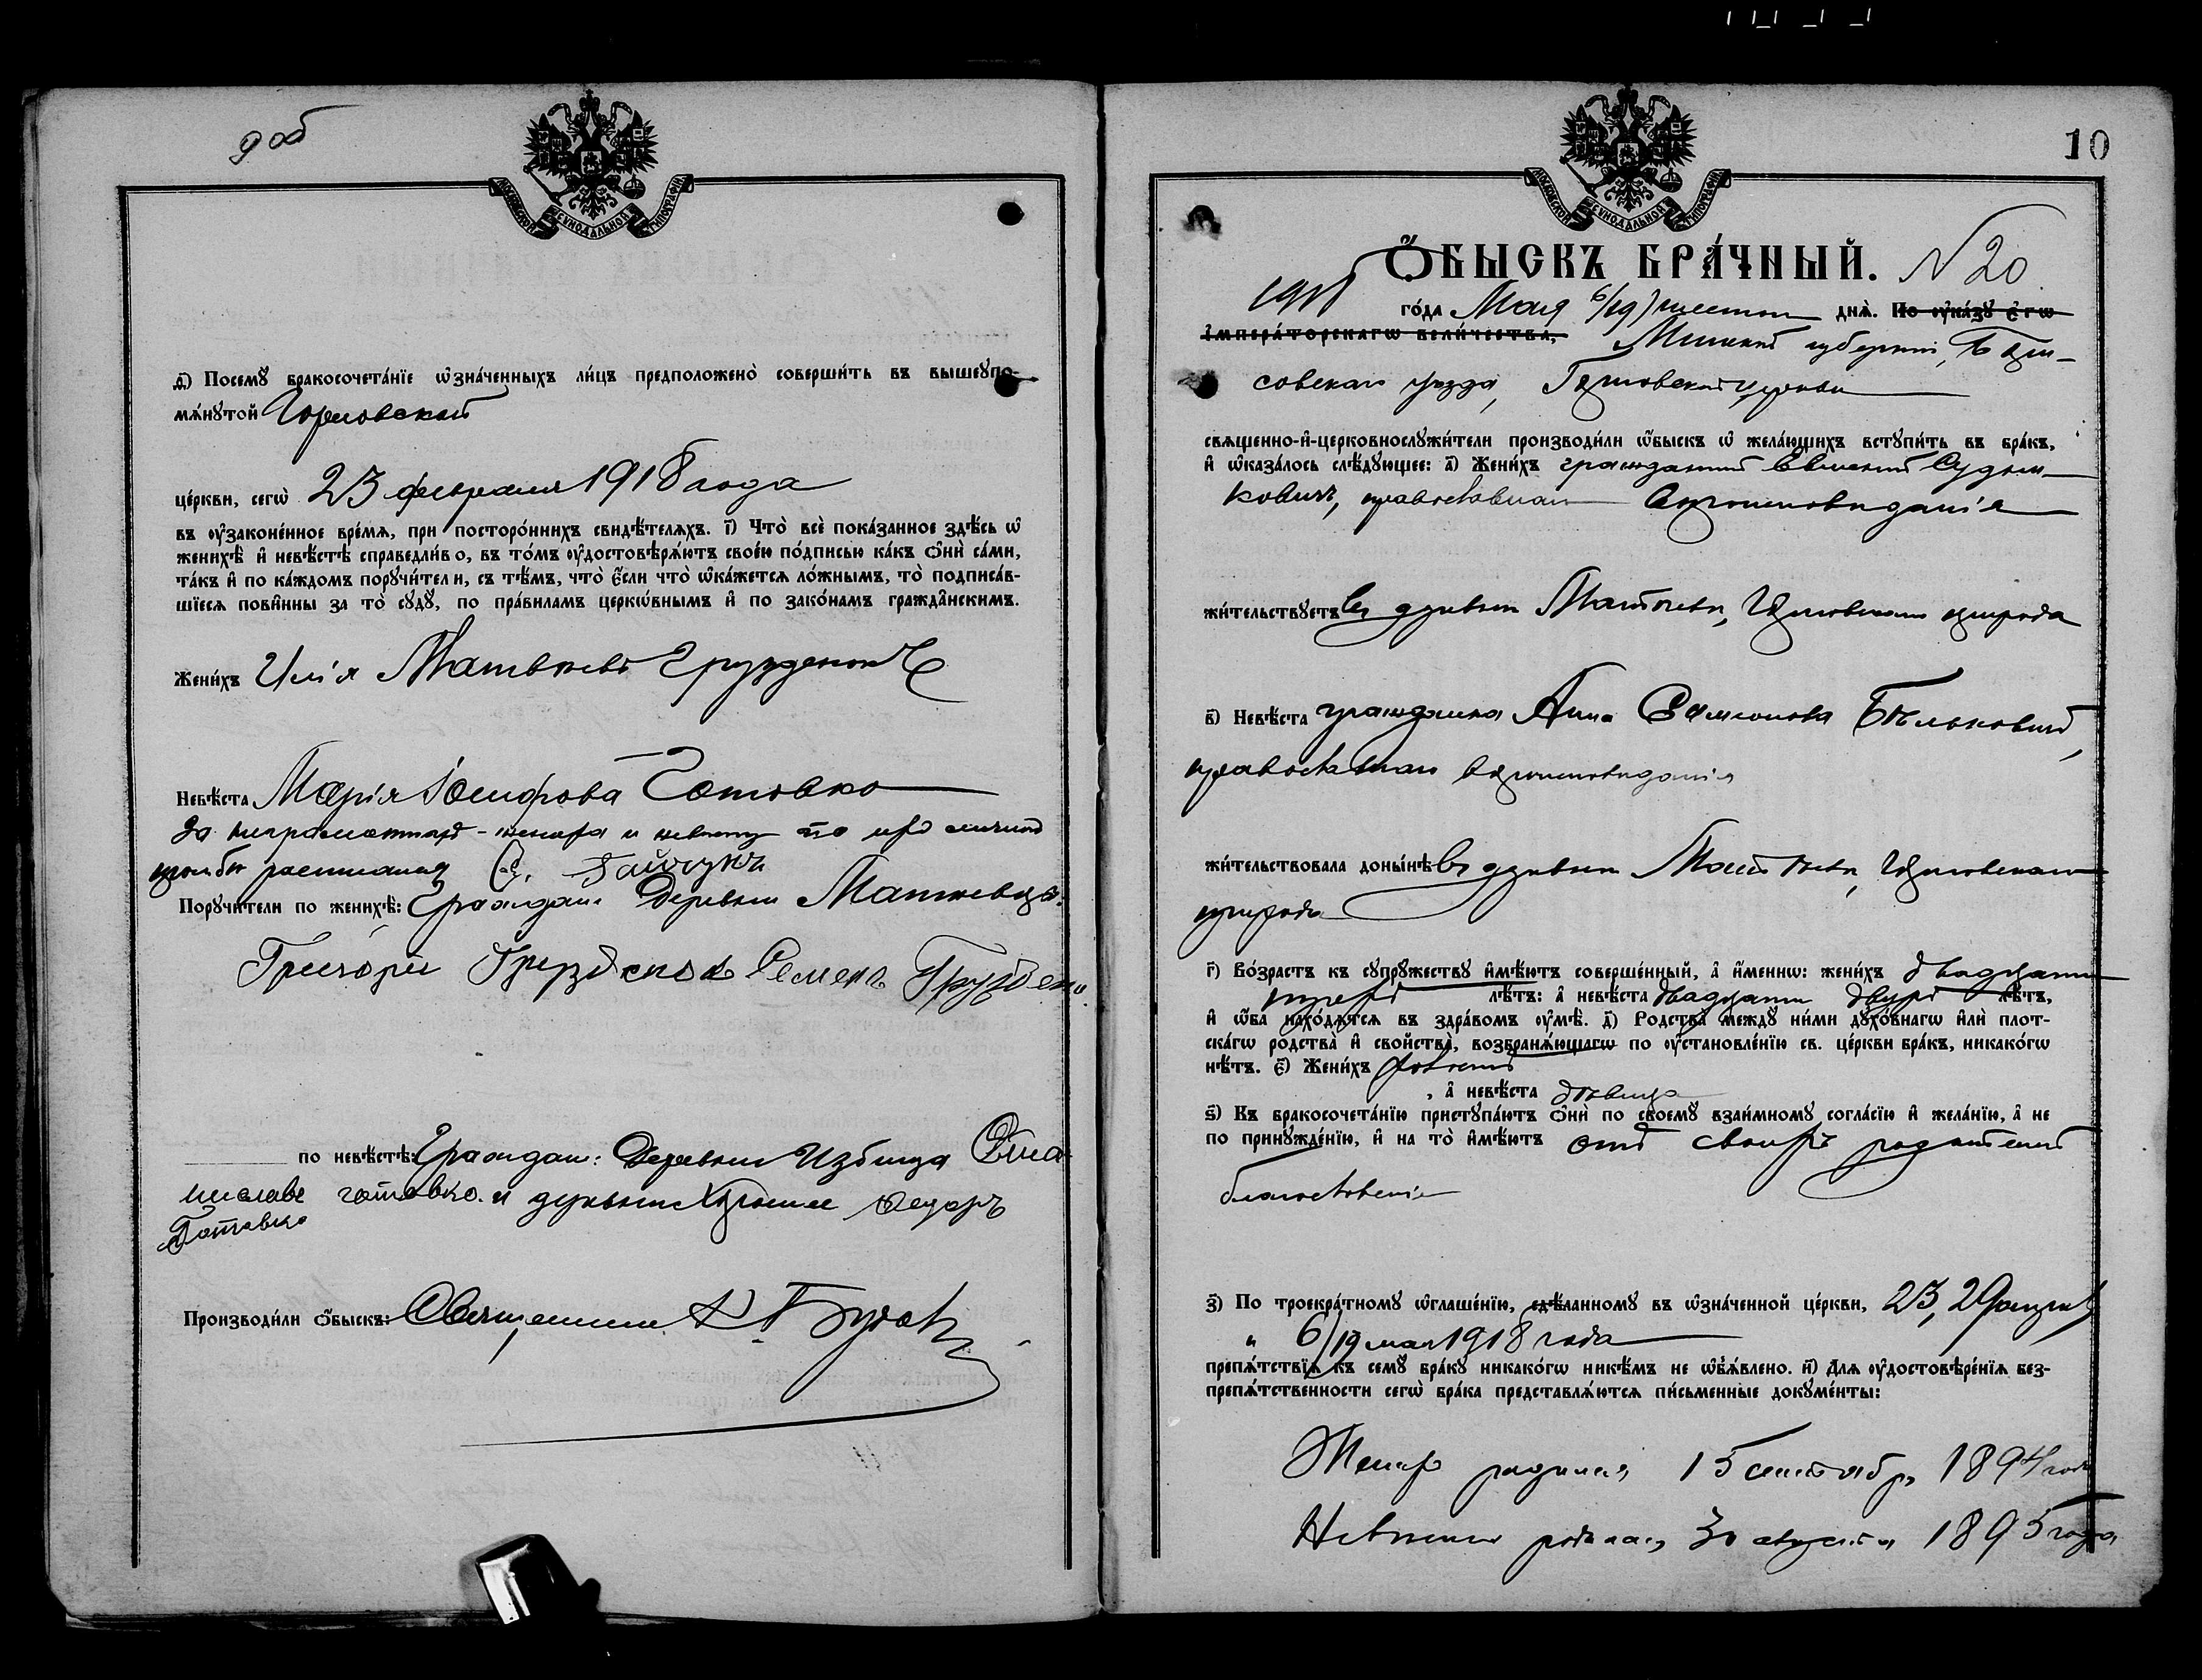 9 об
МОСКОВСКОЙ СѴНОДАЛЬНОЙ ТИПОГРАФІИ
ѳ҃) Посемꙋ̀ бракосочета́нїе ѡ҆зна́ченныхъ ли́цъ предположено̀ соверши́ть въ вышеꙋпо-
мѧ́нꙋтой Горновской
це́ркви, сегѡ̀ 23 февраля 1918 года
въ ᲂу҆законе́нное вре́мѧ, при посторо́ннихъ свидѣ́телѧхъ. і҃) Что̀ всѐ пока́занное здѣ́сь ѡ҆
женихѣ̀ и҆ невѣ́стѣ справедли́во, въ то́мъ ᲂу҆достовѣрѧ́ютъ свое́ю по́дписью ка́къ ѻ҆нѝ са́ми,
та́къ и҆ по ка́ждомъ порꙋчи́тели, съ тѣ́мъ, что̀ є҆́сли что̀ ѡ҆ка́жетсѧ ло́жнымъ, то̀ подписа́в-
шїесѧ пови́нны за то̀ сꙋдꙋ̀, по пра́виламъ церко́внымъ и҆ по зако́намъ гражда́нскимъ.
Жени́хъ Илія Матвѣевъ Грузденокъ
Невѣ́ста Марія Іосифова Готовко
За неграмотныхъ - жениха и невѣсту по ихъ личной
просьбѣ расписался С.
Порꙋчи́тели по женихѣ̀: Граждане Деревни Матѣевцы
Григорій Груздено Семенъ Груздено
по невѣ́стѣ: Граждан: Деревни Избища Стани-
славъ Готовко и деревни
Готовко
Производи́ли ѻ҆́быскъ: Священникъ
10
МОСКОВСКОЙ СѴНОДАЛЬНОЙ ТИПОГРАФІИ
Ѻ҆́БЫСКЪ БРА́ЧНЫЙ. N 20
1918 го́да Мая 6/19) шестого днѧ̀. По ᲂу҆ка́зꙋ є҆гѡ̀
и҆мпера́торскагѡ вели́чества, Минской губерніи, Бори-
совскаго уѣзда, Горновской церкви
свѧще́нно-и҆-церковнослꙋжи́тели производи́ли ѻ҆́быскъ ѡ҆ жела́ющихъ встꙋпи́ть въ бра́къ,
и҆ ѡ҆каза́лось слѣ́дꙋющее: а҃) Жени́хъ гражданинъ Евгеній
ковичъ, православнаго вѣроисповѣданія
жи́тельствꙋетъ въ деревнѣ Горновскаго прихода
в҃) Невѣ́ста гражданка Анна Самсонова Бѣльковичъ,
православнаго вѣроисповѣданія
жи́тельствовала доны́нѣ въ деревнѣ Горновскаго
прихода
г҃) Во́зрастъ къ сꙋпрꙋ́жествꙋ и҆мѣ́ютъ соверше́нный, а҆ и҆́меннѡ: жени́хъ двадцати
трехъ лѣ́тъ: а҆ невѣ́ста двадцати двухъ лѣ́тъ,
и҆ ѻ҆́ба нахо́дѧтсѧ въ здра́вомъ ᲂу҆мѣ̀. д҃) Родства̀ междꙋ̀ ни́ми дꙋхо́внагѡ и҆лѝ плот-
ска́гѡ родства̀ и҆ свойства̀, возбранѧ́ющагѡ по ᲂу҆становле́нїю св. це́ркви бра́къ, никако́гѡ
нѣ́тъ. є҃) Жени́хъ холостъ
, а҆ невѣ́ста дѣвица
ѕ҃) Къ бракосочета́нїю пристꙋпа́ютъ ѻ҆нѝ по своемꙋ̀ взаи́мномꙋ согла́сїю и҆ жела́нїю, а҆ не
по принꙋжде́нїю, и҆ на то̀ и҆мѣ́ютъ отъ своихъ родителей
благословеніе
з҃) По троекра́тномꙋ ѡ҆глаше́нїю, сдѣ́ланномꙋ въ ѡ҆зна́ченной це́ркви, 23, 29 апрѣля
и 6/19 мая 1918 года
препѧ́тствїѧ къ семꙋ̀ бра́кꙋ никако́гѡ никѣ́мъ не ѡ҆б̾ѧ́влено. и҃) Длѧ ᲂу҆достовѣре́нїѧ без-
препѧ́тственности сегѡ̀ бра́ка представлѧ́ютсѧ пи́сьменные докꙋме́нты:
Женихъ родился 15 сентября 1894 года
Невѣста родилась 30 августа 1895 года